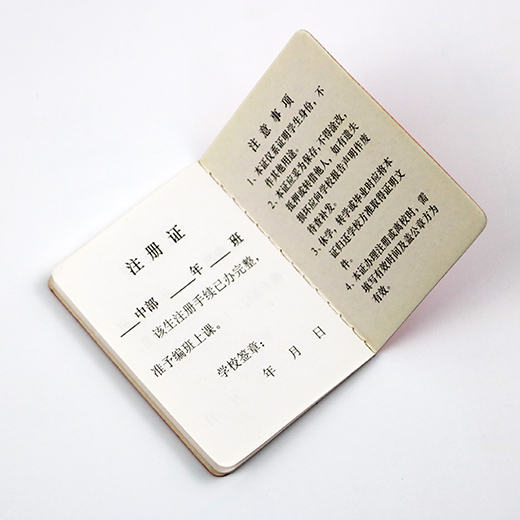 注册证
中部 年 班
该生注册手续已办完整，
准予编班上课。
学校签章：
年 月 日
注意事项
1、本证仅系证明学生身份，不
作其他用途。
2、本证应妥为保存，不得涂改，
抵押或转借他人，如有遗失
损坏应向学校报告声明作废
待查补发。
3、休学，转学或毕业时应将本
证归还学校方准取得证明文
件。
4、本证办理注册或离校时，需
填写有效时间及盖公章方为
有效。